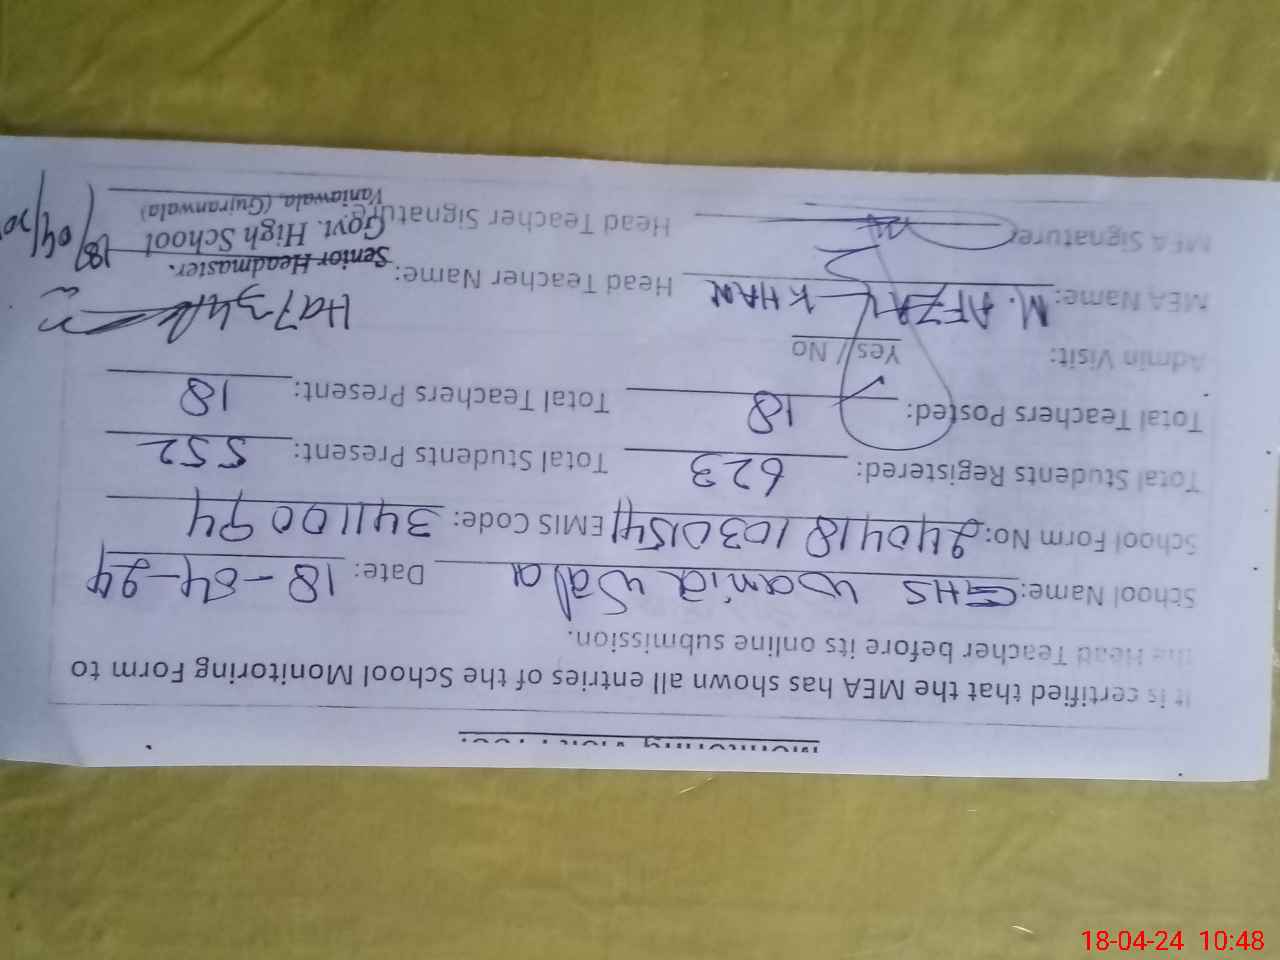 It is certified that the MEA has shown all entries of the School Monitoring Form to
the Head Teacher before its online submission.
School Name: GHS wania wala Date: 18-04-24
School Form No: 2404181030154 EMIS Code: 34110094
Total Students Registered: 623 Total Students Present: 552
Total Teachers Posted: 18 Total Teachers Present: 18
Admin Visit: Yes / No
MEA Name: M. AFZAL KHAN Head Teacher Name:
Senior Headmaster.
MEA Signature: Head Teacher Signature:
Govt. High School
Vaniawala (Gujranwala)
18-04-24 10:48